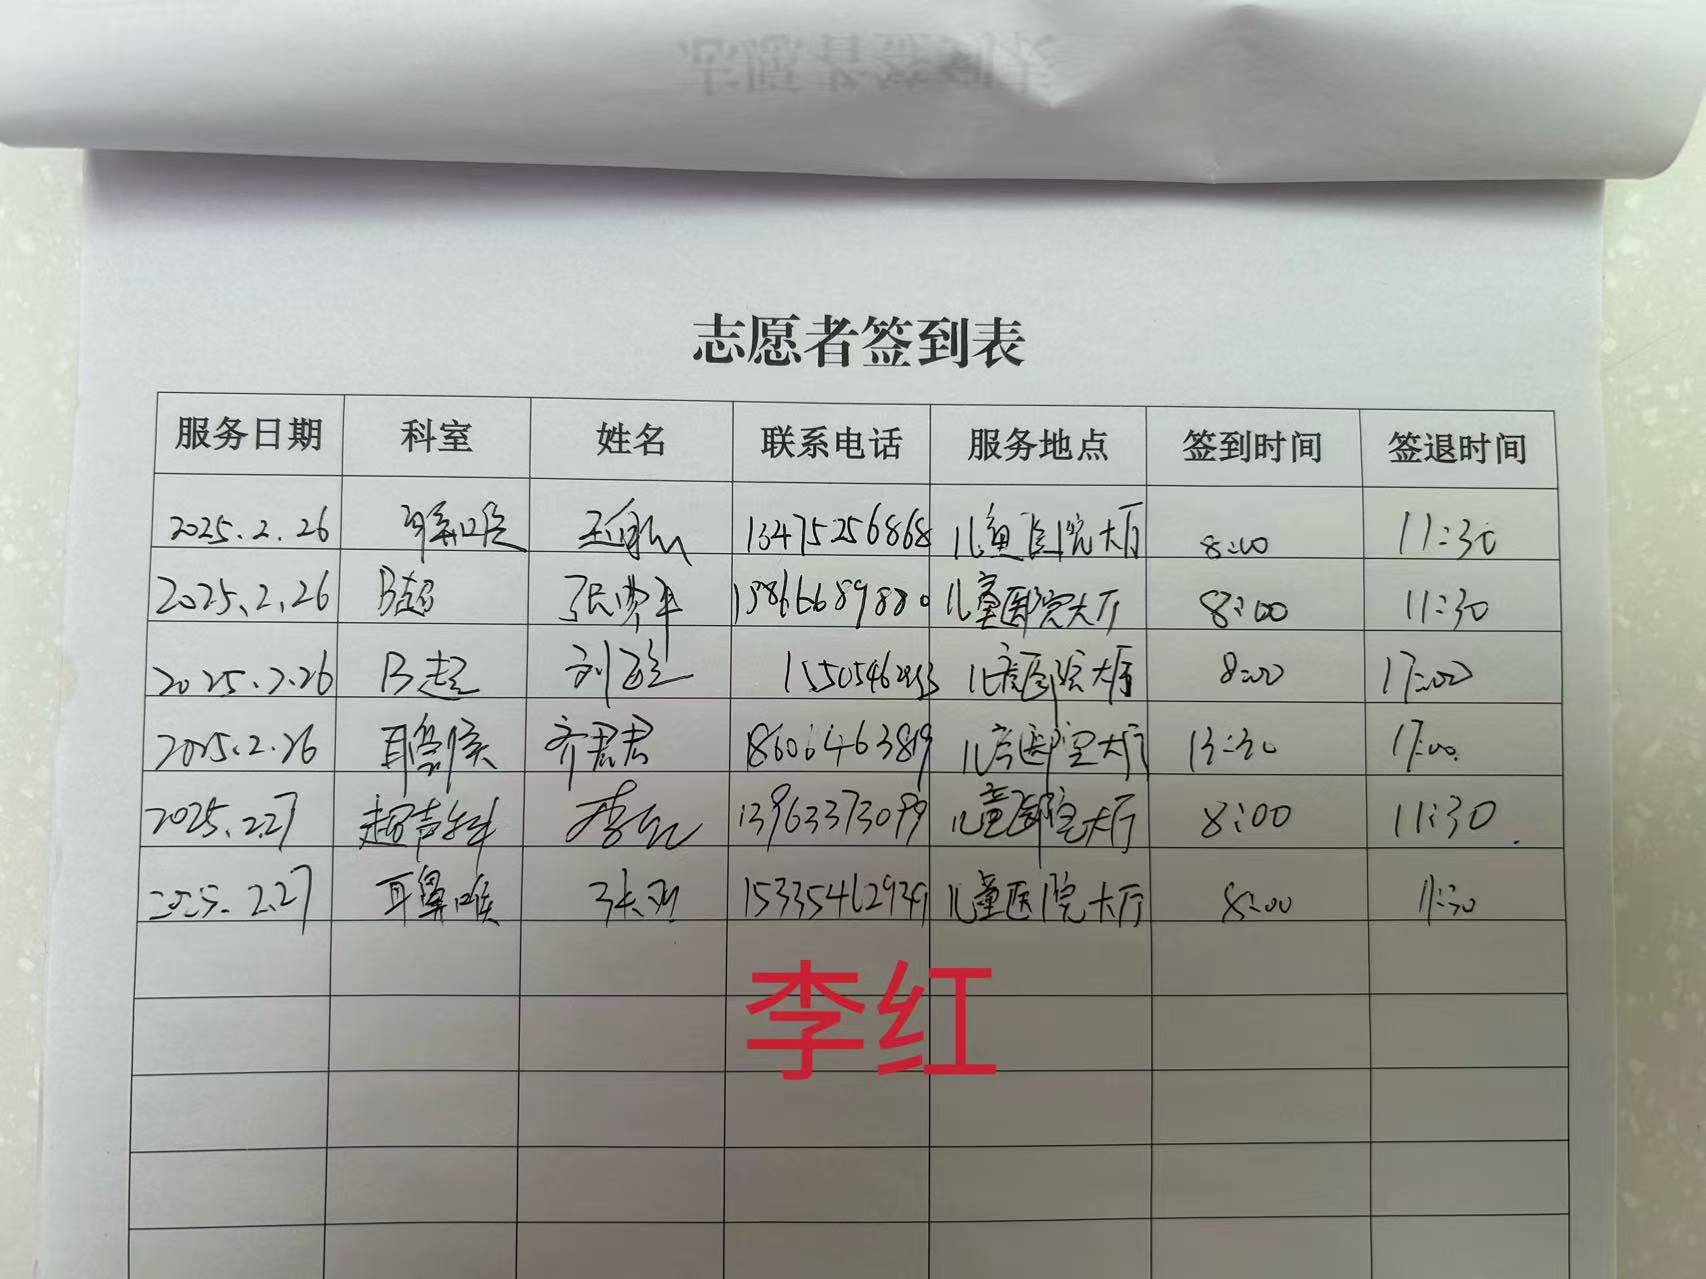 志愿者签到表
服务日期 科室 姓名 联系电话 服务地点 签到时间 签退时间
2025.2.26 13475256868 儿童医院大厅 8:00 11:30
2025.2.26 B超 13866689880 儿童医院大厅 8:00 11:30
2025.2.26 B超 刘 儿童医院大厅 8:00 17:00
2025.2.26 耳鼻喉 齐君君 18606463819 儿童医院大厅 13:30 17:00
2025.2.27 超声科 李红 13963373099 儿童医院大厅 8:00 11:30
2025.2.27 耳鼻喉 儿童医院大厅 8:00 11:30
李红